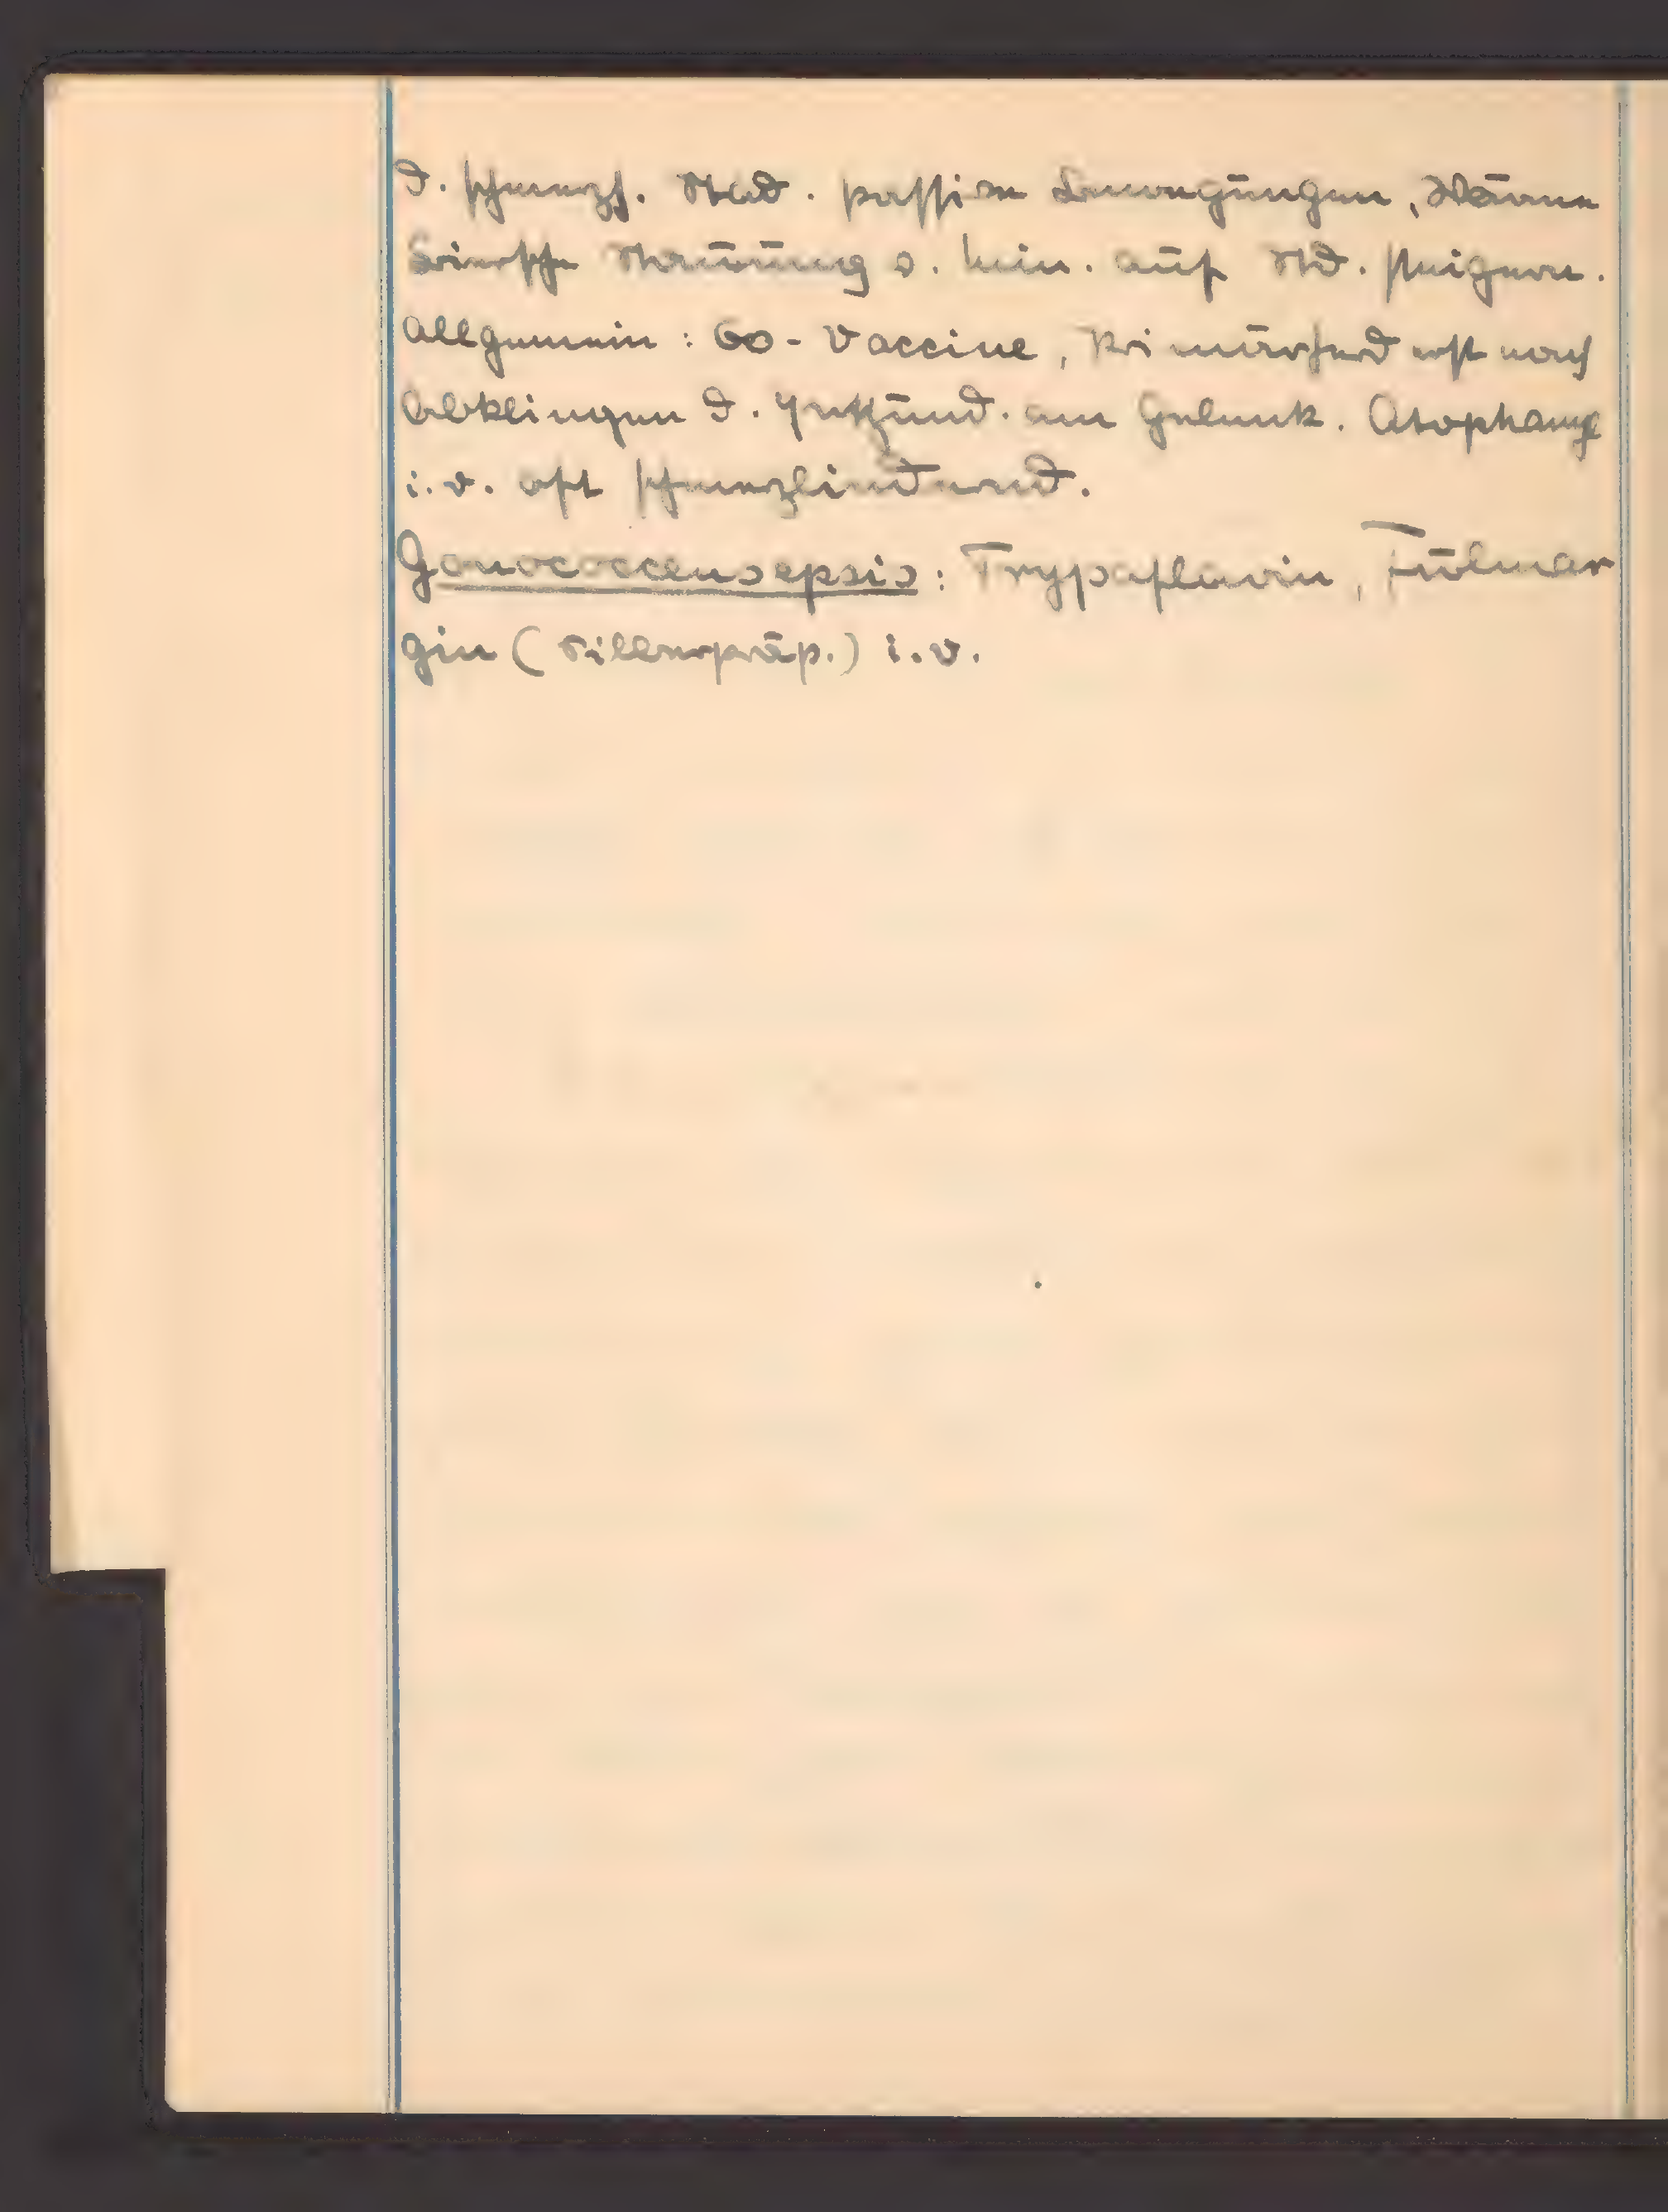 d. schmerzh. Stad. passive Bewegungen, Wärme
Biersche Stauung v. min. auf Std. steigern.
Allgemein: Go-Vaccine, Primärherd erst nach
Abklingen d. Entzünd. am Gelenk. Atophanyl
i.v. oft schmerzlindernd.
Gonococcensepsis: Trypaflavin, Fulmar
gin (Silberpräp.) i.v.